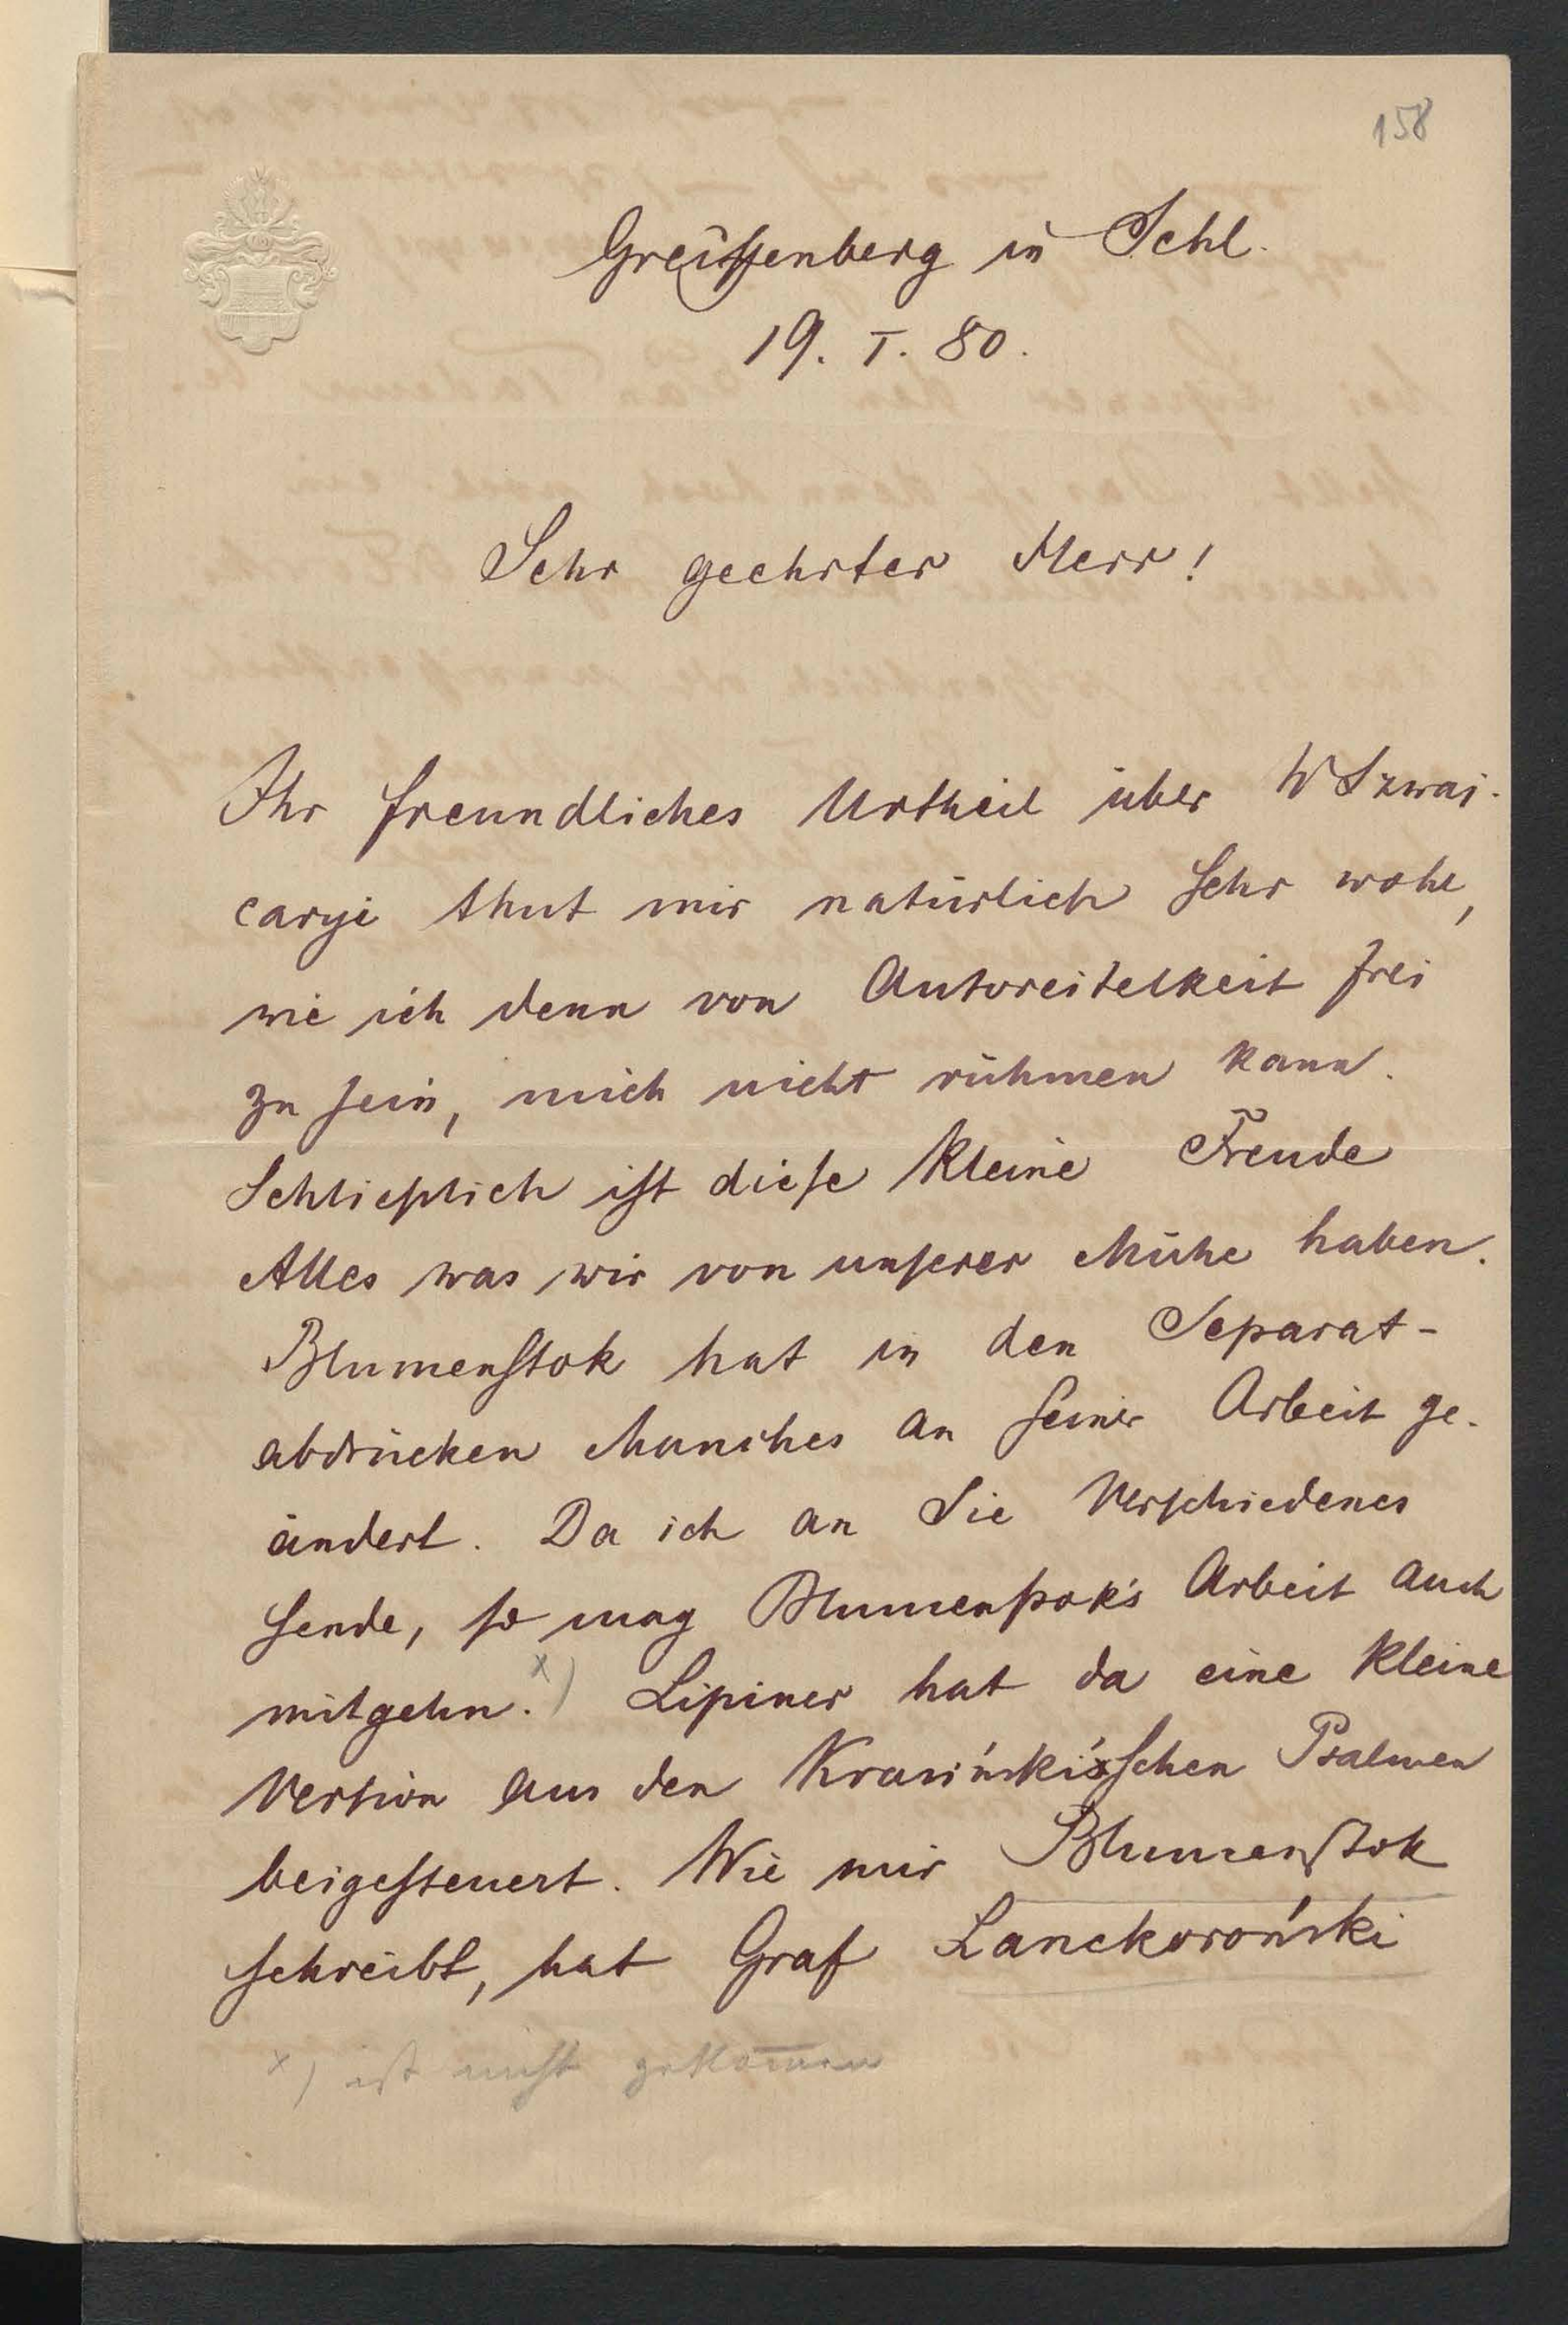 158
Greiffenberg in Schl.
19. I. 80.
Sehr geehrter Herr!
Ihr freundliches Urtheil über W Szwaj-
caryi thut mir natürlich sehr wohl,
wie ich denn von Autoreitelkeit frei
zu sein, mich nicht rühmen kann.
Schließlich ist diese kleine Freude
Alles was wir von unserer Mühe haben.
Blumenstok hat in den Separat-
abdrücken Manches an seiner Arbeit ge-
ändert. Da ich an Sie Verschiedenes
sende, so mag Blumenstok's Arbeit auch
mitgehn. x) Lipiner hat da eine kleine
Version aus den Krasiński'schen Psalmen
beigesteuert. Wie mir Blumenstok
schreibt, hat Graf Lanckoroński
x) ist nicht gekommen